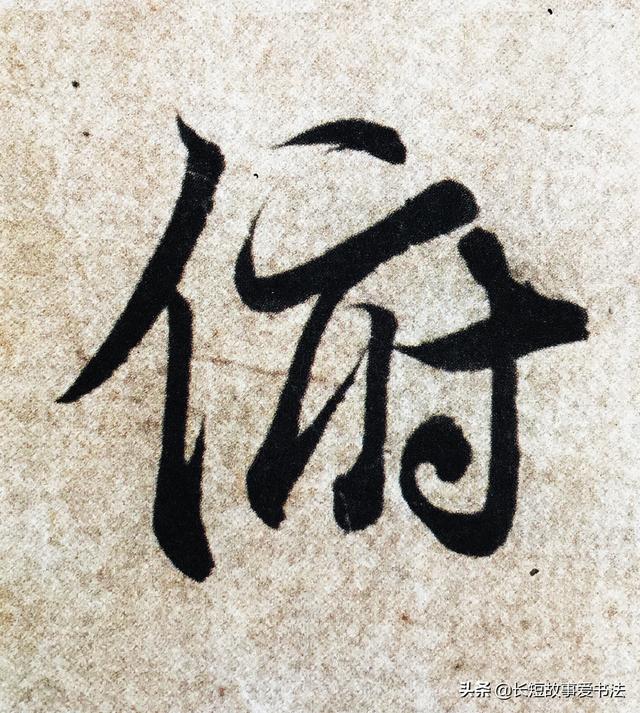 俯
头条 @长短故事爱书法